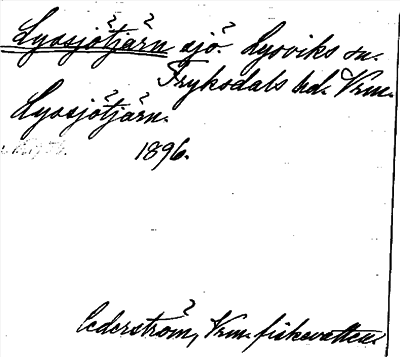 Lyssjötjärn sjö Lysviks sn.
Fryksdals hd. Vrm.
Lyssjötjärn.
1896.
Cederström, Vrm. fiskevatten.